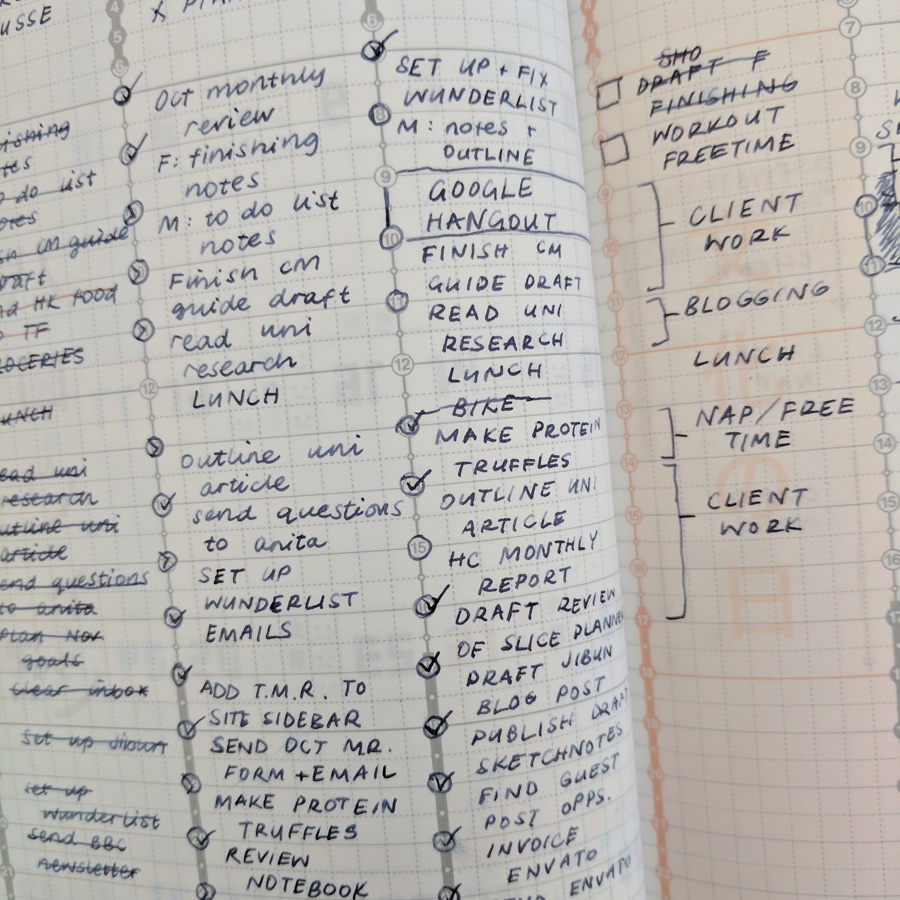 USSE
ishing
tes
o do list
otes
sh CM guide
raft
nd HK FOOD
TF
ROCERIES
UNCH
ead uni
research
utline uni
article
end questions
to anita
Plan Nov
goals
clear inbox
set up Jibun
set up
wunderlist
send BBC
newsletter
4
5
6
12
Oct monthly
review
F: finishing
notes
M: to do list
notes
Finish CM
guide draft
read uni
research
LUNCH
outline uni
article
send questions
to anita
SET UP
WUNDERLIST
EMAILS
ADD T.M.R. TO
SITE SIDEBAR
SEND OCT MR.
FORM + EMAIL
MAKE PROTEIN
TRUFFLES
REVIEW
NOTEBOOK
6
8
9
10
11
12
15
SET UP + FIX
WUNDERLIST
M: notes +
OUTLINE
GOOGLE
HANGOUT
FINISH CM
GUIDE DRAFT
READ UNI
RESEARCH
LUNCH
BIKE
MAKE PROTEIN
TRUFFLES
OUTLINE UNI
ARTICLE
HC MONTHLY
REPORT
DRAFT REVIEW
OF SLICE PLANNER
DRAFT JIBUN
BLOG POST
PUBLISH DRAF
SKETCHNOTES
FIND GUEST
POST OPPS.
INVOICE
ENVATO
ENVATO
9
10
11
12
13
14
15
16
17
SHO
DRAFT F
FINISHING
WORKOUT
FREETIME
CLIENT
WORK
BLOGGING
LUNCH
NAP/FREE
TIME
CLIENT
WORK
7
8
9
10
11
12
13
14
15
16
17